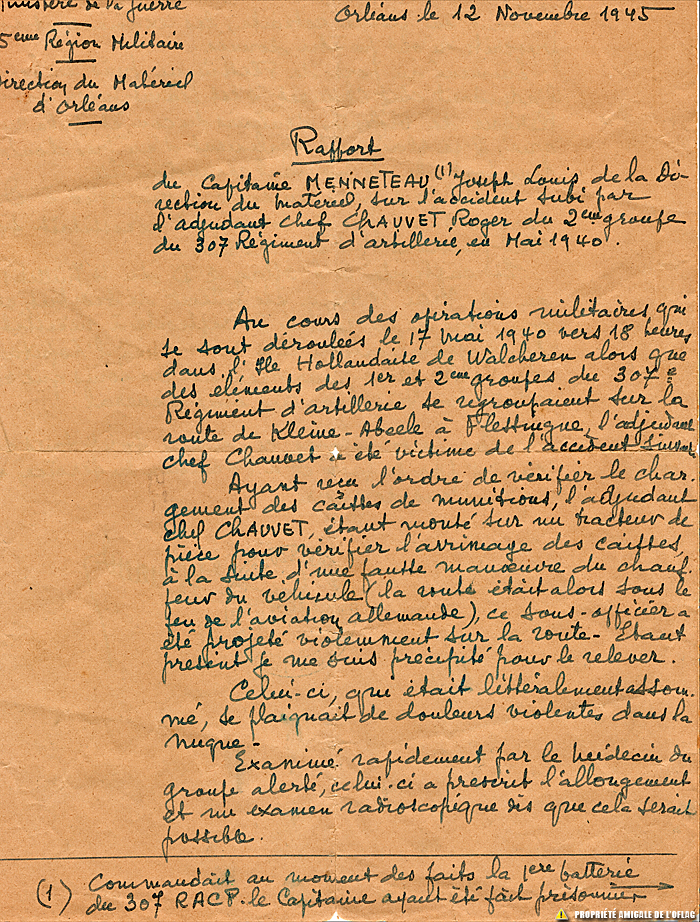 Ministère de la Guerre
Orléans le 12 Novembre 1945
5eme Région Militaire
Direction du Matériel
d'Orléans
Rapport
du Capitaine MENNETEAU (1) Joseph Louis de la Di-
rection du matériel, sur l'accident subi par
l'adjudant chef CHAUVET Roger du 2eme groupe
du 307 Régiment d'artillerie, en Mai 1940.
Au cours des opérations militaires qui
se sont déroulées le 17 mai 1940 vers 18 heures
dans l'Ile Hollandaise de Walcheren alors que
des eléments des 1er et 2eme groupes du 307e
Régiment d'artillerie se regroupaient sur la
route de Kleine-Abeele à Flessingue, l'adjudant
chef Chauvet a été victime de l'accident suivant.
Ayant reçu l'ordre de vérifier le char-
gement des caisses de munitions, l'adjudant
chef CHAUVET, étant monté sur un tracteur de
pièce pour vérifier l'arrimage des caisses,
à la suite d'une fausse manœuvre du chauf-
feur du véhicule (la route était alors sous le
feu de l'aviation allemande), ce sous-officier a
été projeté violemment sur la route - Etant
présent je me suis précipité pour le relever.
Celui-ci, qui était littéralement assom-
mé, se plaignait de douleurs violentes dans la
nuque -
Examiné rapidement par le médecin du
groupe alerté, celui-ci a prescrit l'allongement
et un examen radioscopique dès que cela serait
possible.
(1) Commandait au moment des faits la 1ere batterie
du 307 RACP. le Capitaine ayant été fait prisonnier
PROPRIÉTÉ AMICALE DE L'OFLAG